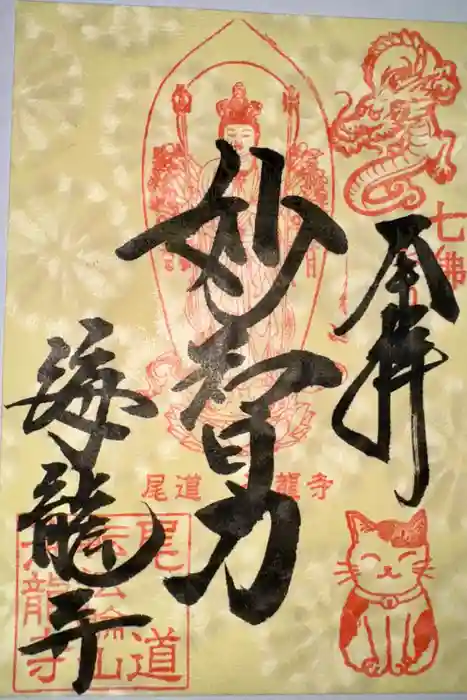 奉拝
七佛
妙智力
尾道 海龍寺
海龍寺
尾道
法輪山
海龍寺